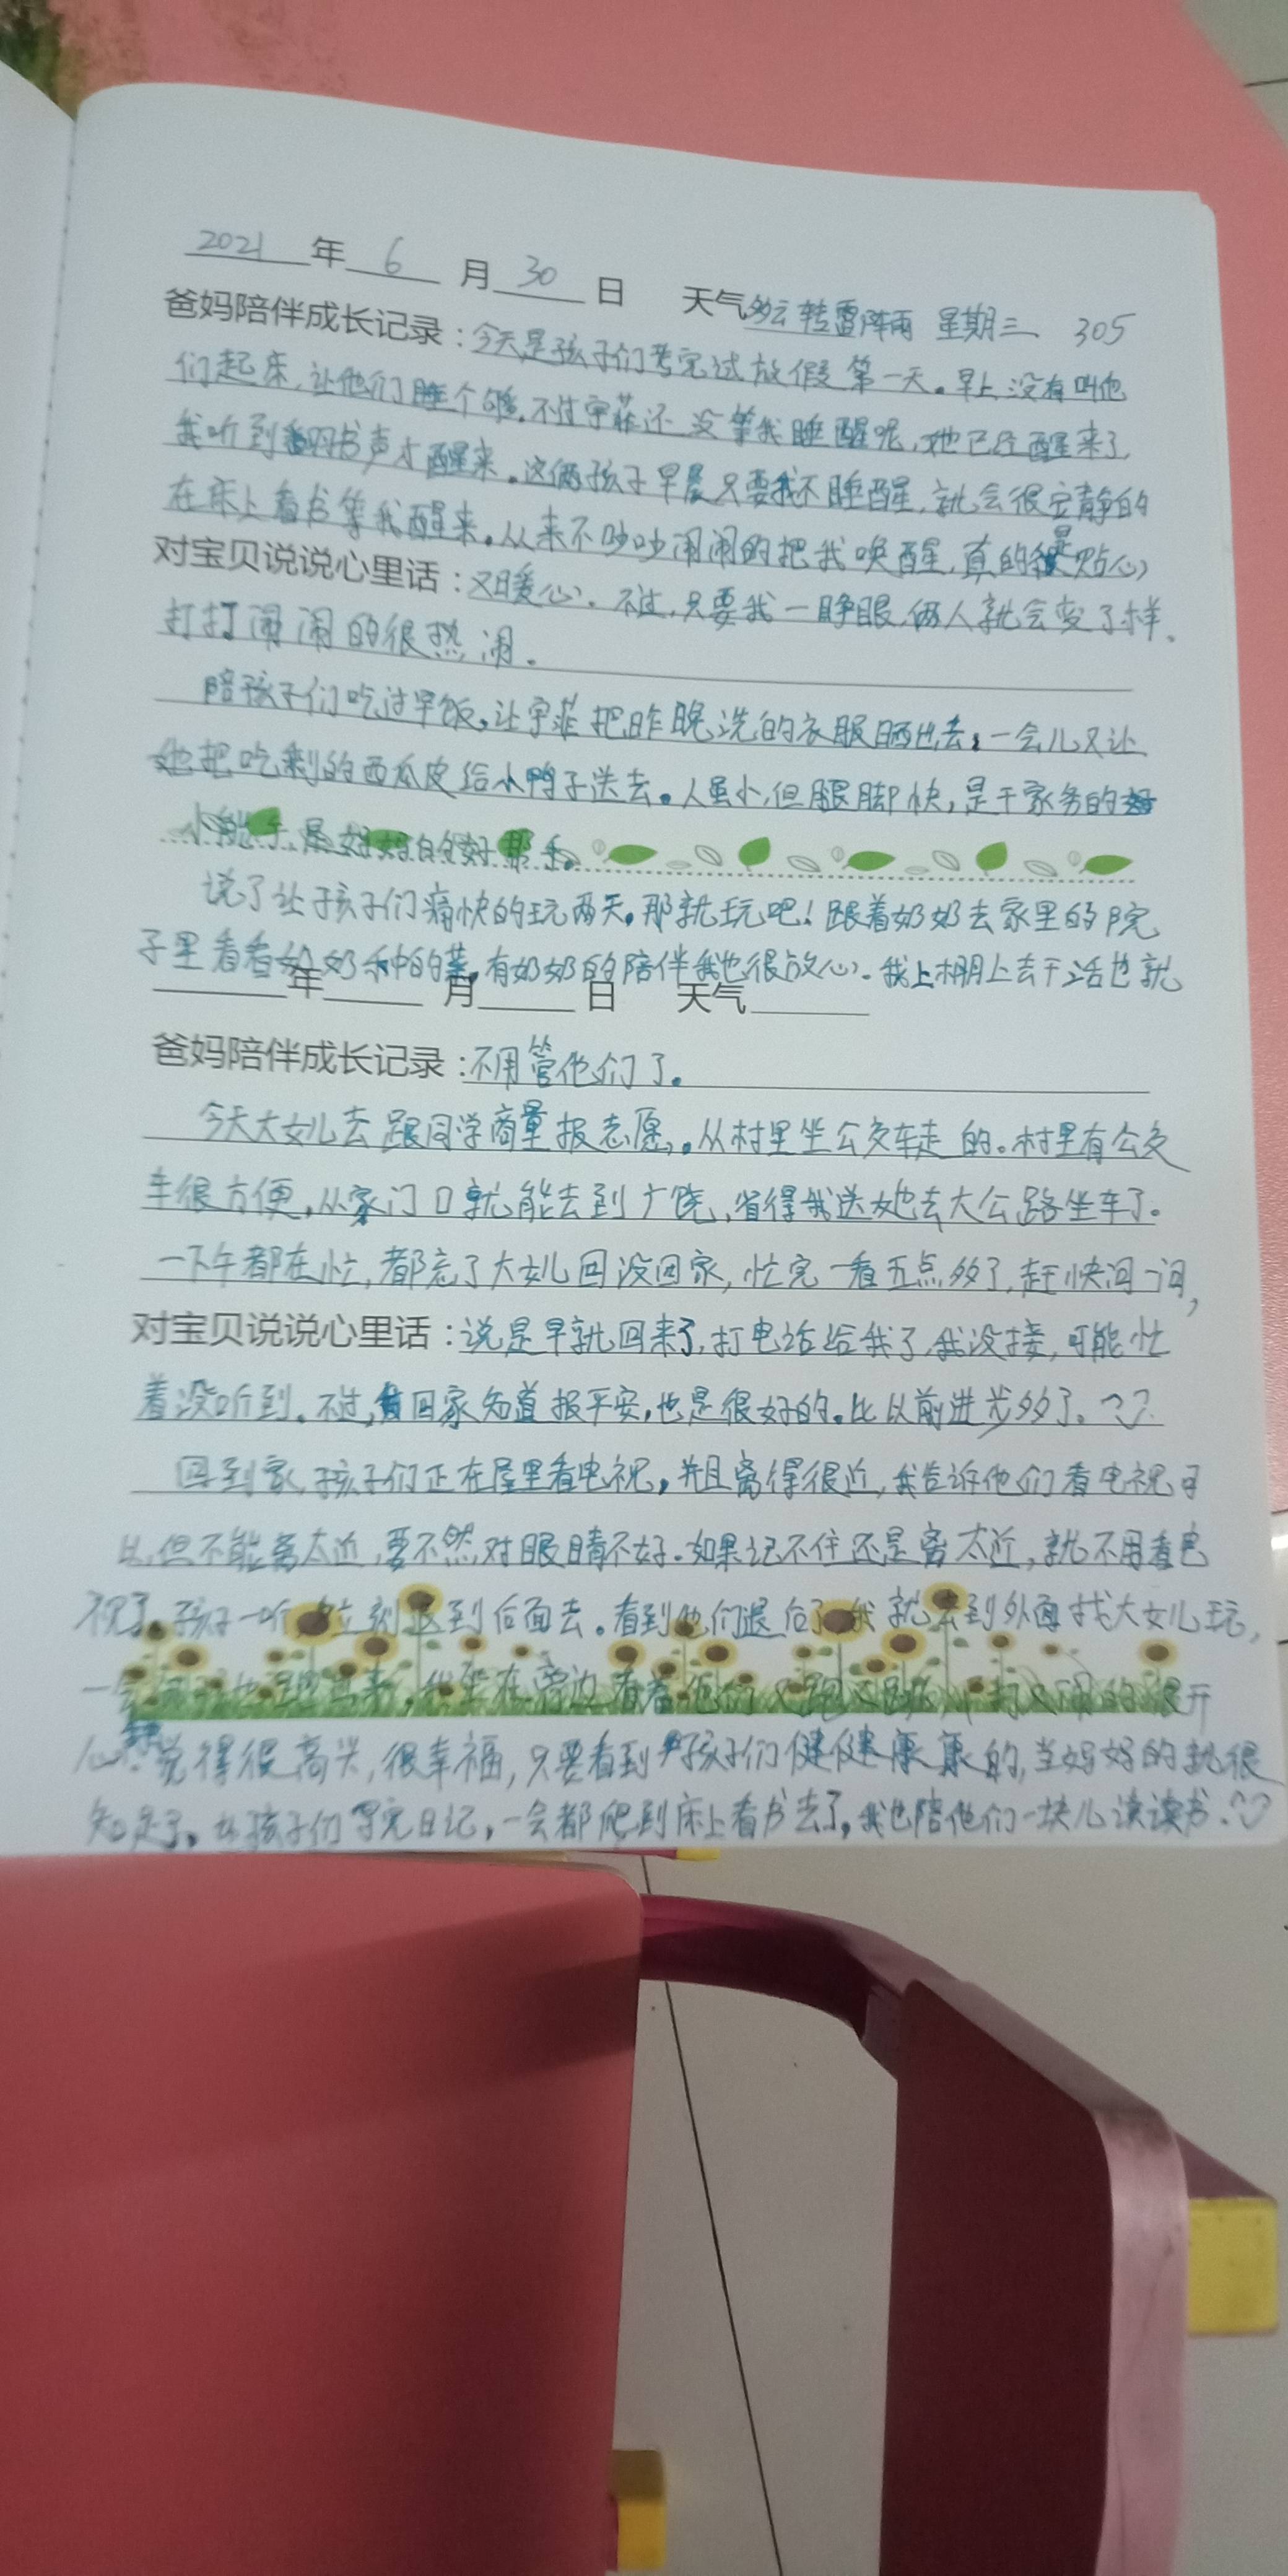 2021年6月30日 天气多云转雷阵雨 星期三 305
爸妈陪伴成长记录:今天是孩子们考完试放假第一天。早上没有叫他
们起床,让他们睡个够。不过宇菲还没等我睡醒呢,她已经醒来了,
我听到翻书声才醒来。这俩孩子早晨只要我不睡醒,就会很安静的
在床上看书等我醒来。从来不吵吵闹闹的把我唤醒,真的是贴心
对宝贝说说心里话:又暖心。不过,只要我一睁眼,俩人就会变了样。
打打闹闹的很热闹。
陪孩子们吃过早饭。让宇菲把昨晚洗的衣服晒出去,一会儿又让
她把吃剩的西瓜皮给小鸭子送去。人虽小,但腿脚快,是干家务的好
小能手,是妈妈的好帮手。
说了让孩子们痛快的玩两天。那就玩吧!跟着奶奶去家里的院
子里看看奶奶种的菜,有奶奶的陪伴我也很放心。我上棚上去干活也就
年 月 日 天气
爸妈陪伴成长记录:不用管他们了。
今天大女儿去跟同学商量报志愿,。从村里坐公交车走的。村里有公交
车很方便,从家门口就能去到广饶,省得我送她去大公路坐车了。
一下午都在忙,都忘了大女儿回没回家,忙完一看五点多了,赶快问一问,
对宝贝说说心里话:说是早就回来了,打电话给我了,我没接,可能忙
着没听到。不过,回家知道报平安,也是很好的。比以前进步多了。
回到家,孩子们正在屋里看电视,并且离得很近,我告诉他们看电视可
以,但不能离太近,要不然对眼睛不好。如果记不住还是离太近,就不用看电
视了。孩子一听,立刻退到后面去。看到他们退后了,我就去到外面找大女儿玩,
一会也跑出来,坐在旁边看着他们又跑又跳,又的很开
心。觉得很高兴,很幸福,只要看到孩子们健健康康的,当妈妈的就很
知足了。孩子们写完日记,一会都爬到床上看书去了,我也陪他们一块儿读读书。